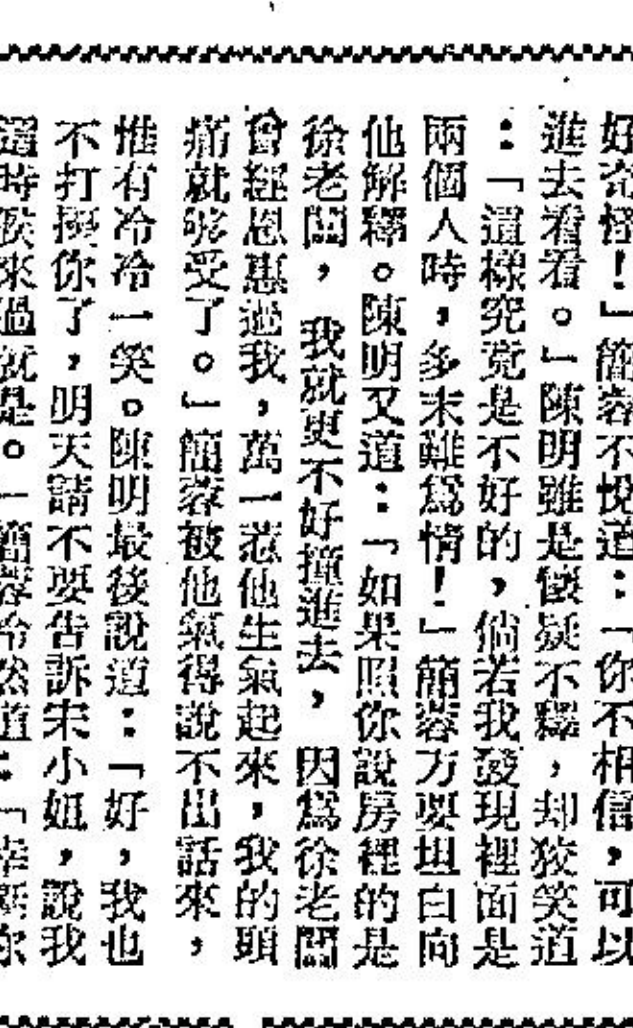 好奇怪!」簡蓉不悅道:「你不相信,可以
進去看看。」陳明雖是懷疑不釋,却狡笑道
:「這樣究竟是不好的,倘若我發現裡面是
兩個人時,多末難爲情!」簡蓉方要坦白向
他解釋。陳明又道:「如果照你說房裡的是
徐老闆,我就更不好撞進去,因爲徐老闆
曾經恩惠過我,萬一惹他生氣起來,我的頭
痛就够受了。」簡蓉被他氣得說不出話來,
惟有冷冷一笑。陳明最後說道:「好,我也
不打擾你了,明天請不要告訴宋小姐,說我
這時候來過就是。」簡蓉冷然道:「幸你